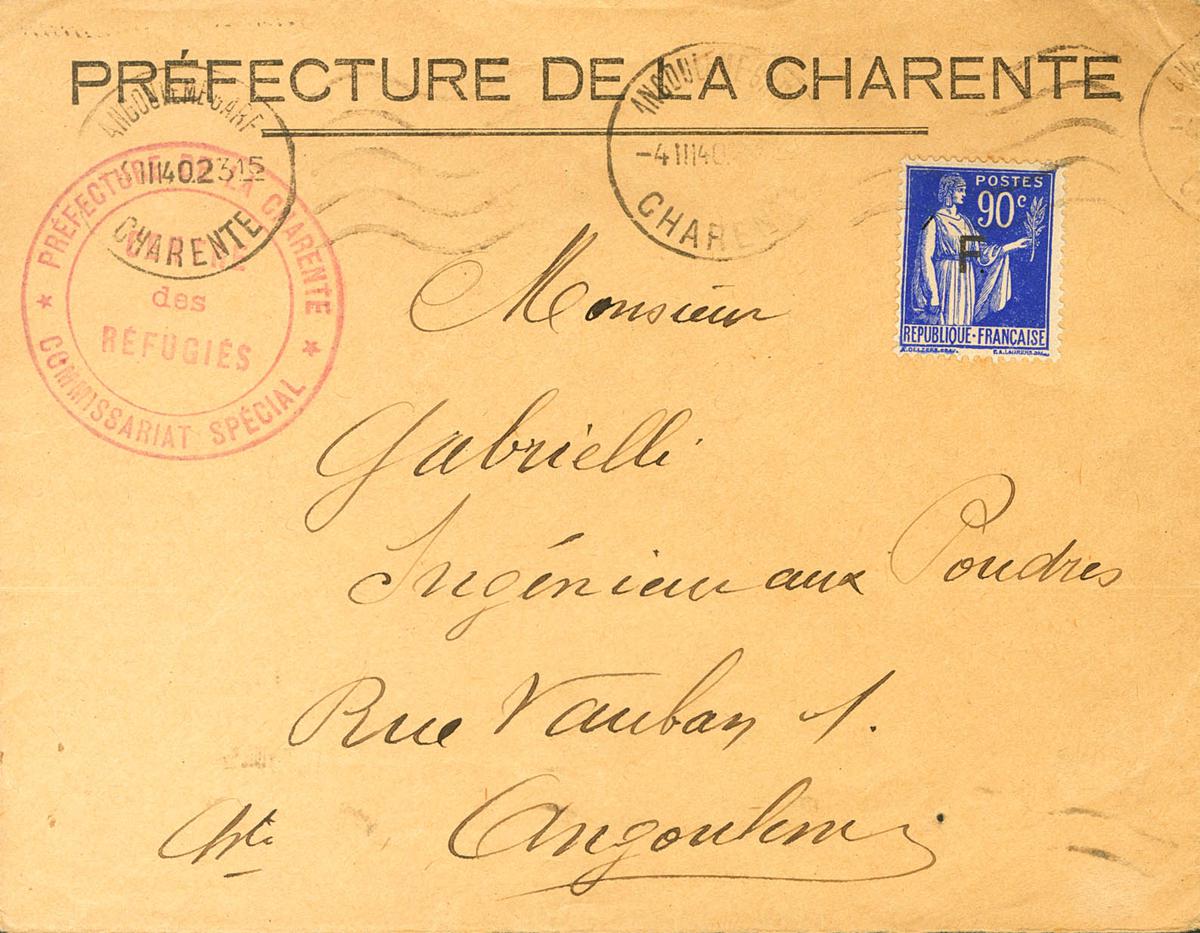 PRÉFECTURE DE LA CHARENTE
ANGOULEME GARE
III40.2315
CHARENTE
ANGOULEME
-4III40.
CHARENTE
PRÉFECTURE DE LA CHARENTE
des
RÉFUGIÉS
★ COMMISSARIAT SPÉCIAL ★
POSTES
90c
F
REPUBLIQUE·FRANÇAISE
Monsieur
Gabrielli
Ingénieur aux Poudres
Rue Vauban 1.
Angoulême